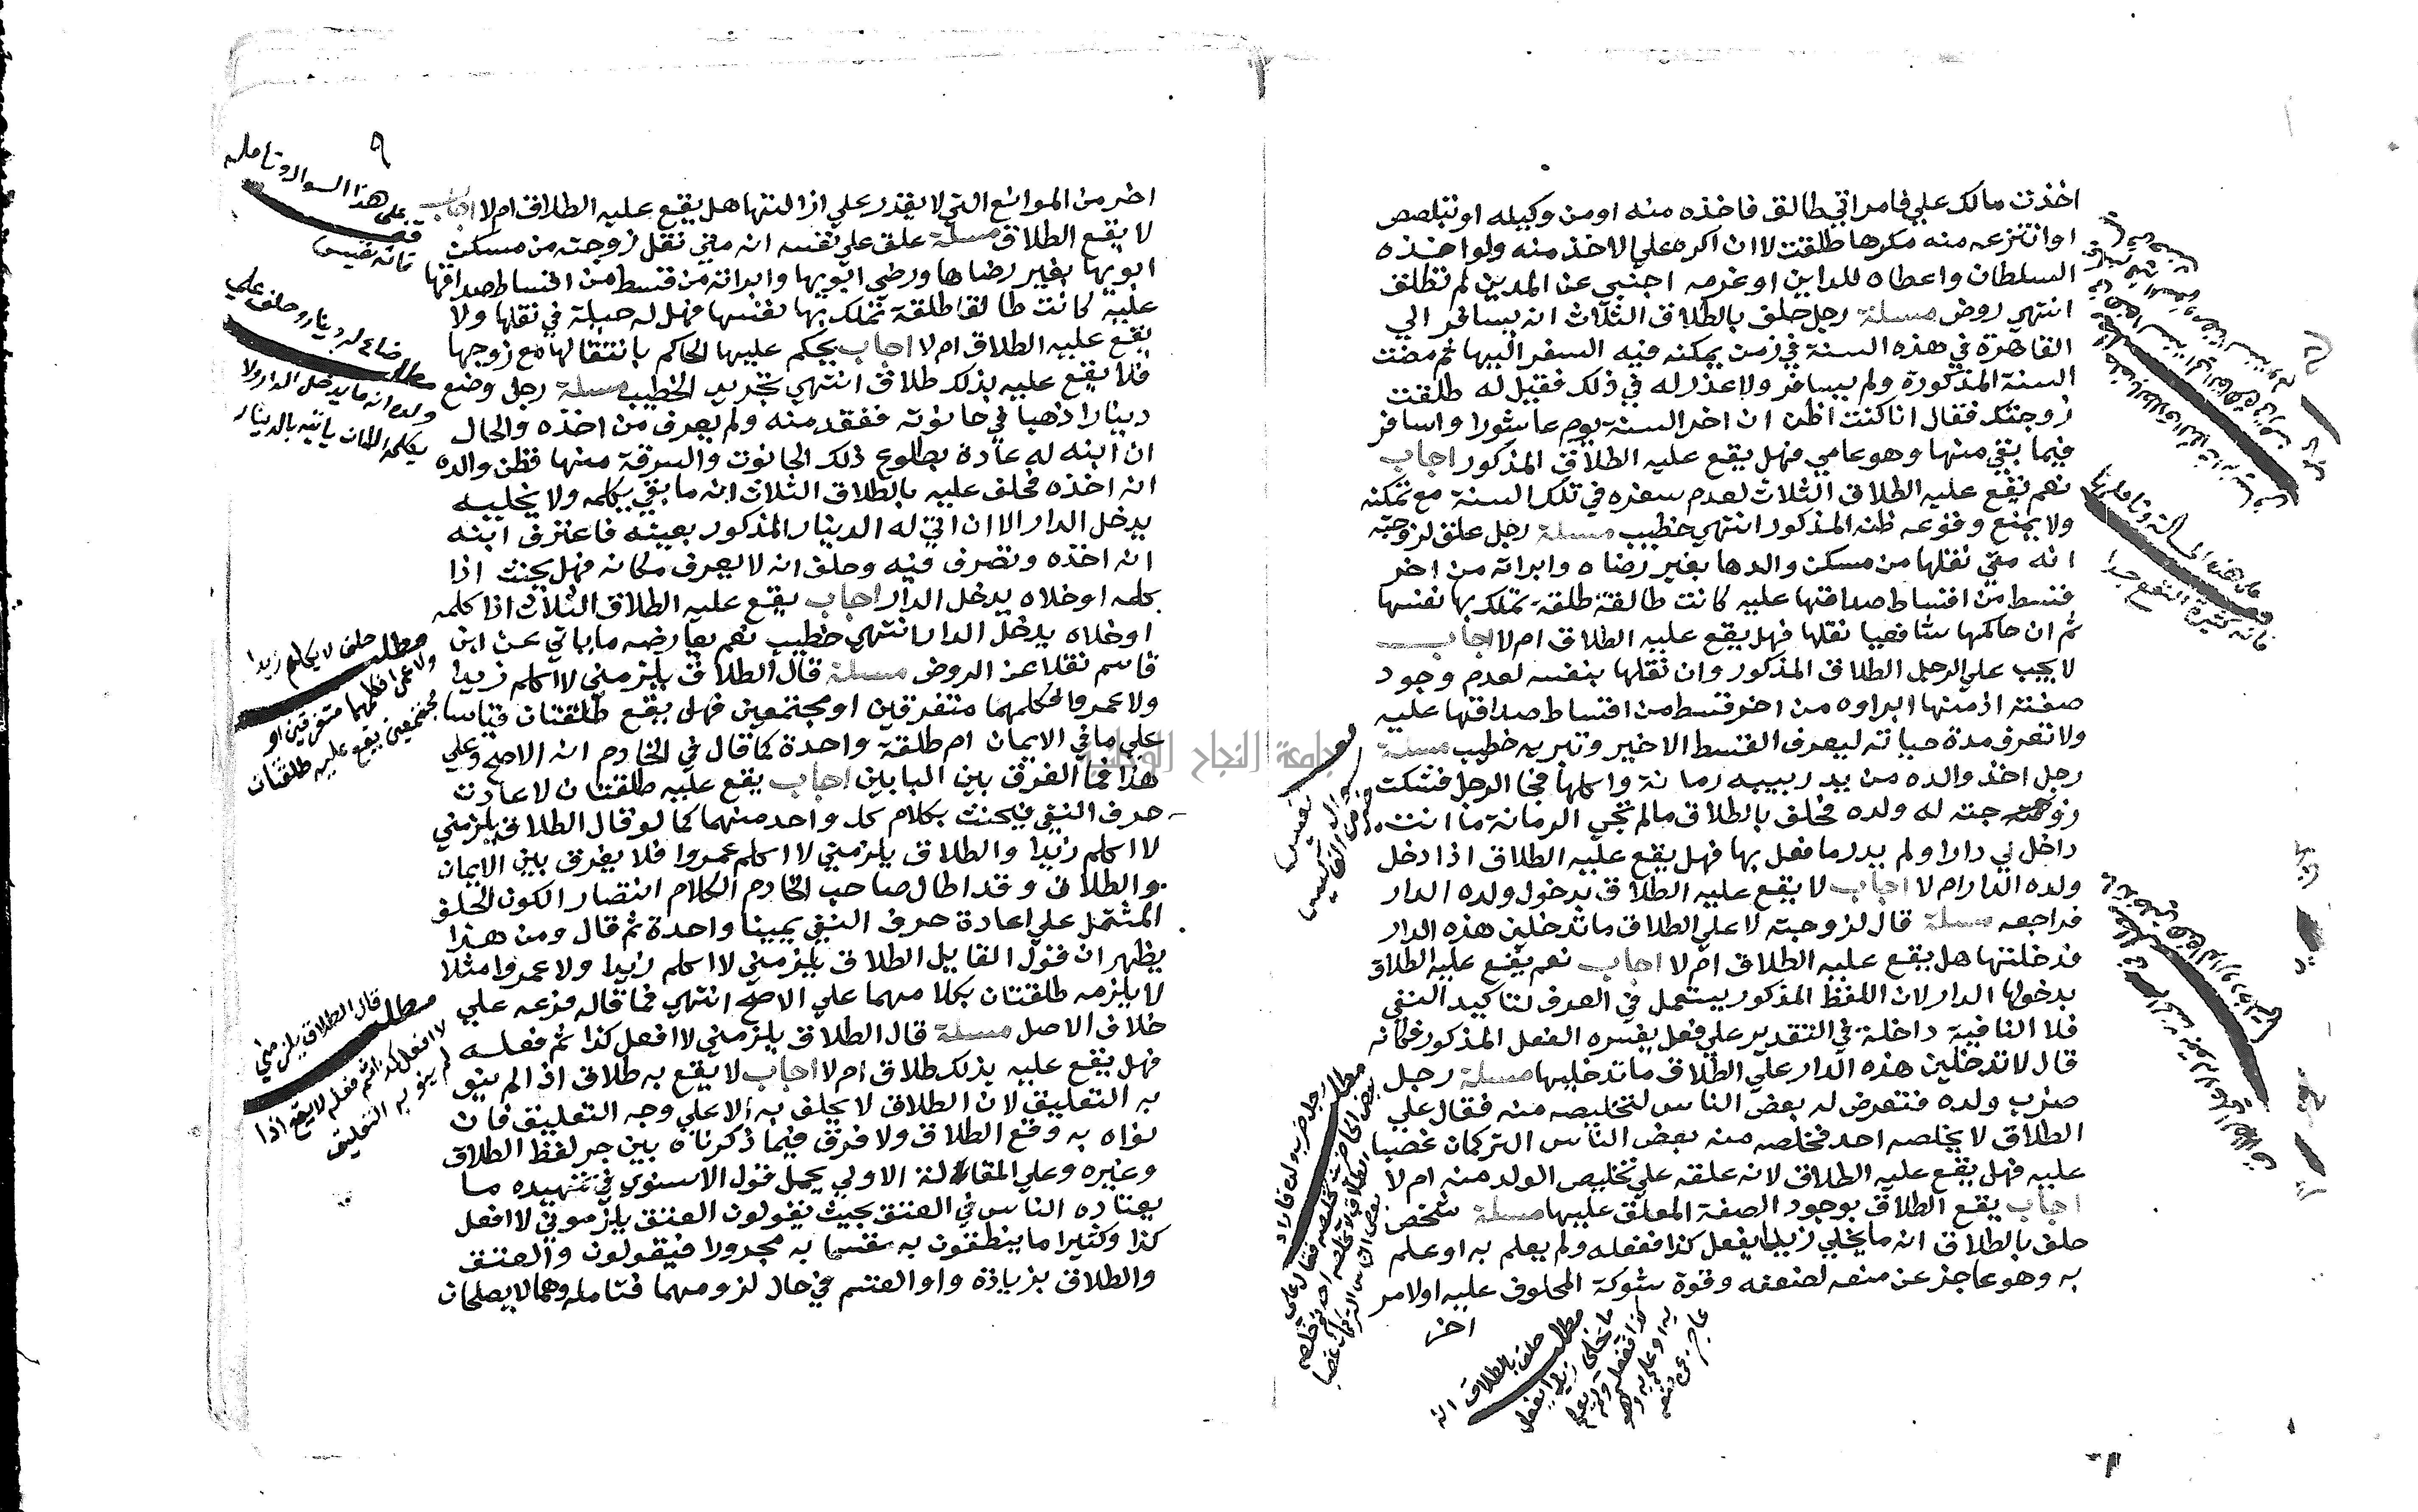 اخذت مالك علي فامراتي طالق فاخذه منه او من وكيله او بتلصص
او انتزعه منه مكرها طلقت لا ان اكره علي الاخذ منه ولو اخذه
السلطان واعطاه للداين او غرمه اجنبي عن المدين لم تطلق
انتهي روض مسلة رجل حلف بالطلاق الثلاث انه يسافر الي
القاهرة في هذه السنة في زمن يمكنه فيه السفر اليها ثم مضت
السنة المذكورة ولم يسافر ولا عذر له في ذلك فقيل له طلقت
زوجتك فقال انا كنت اظن ان اخر السنة يوم عاشورا واسافر
فيما بقي منها وهو عامي فهل يقع عليه الطلاق المذكور اجاب
نعم يقع عليه الطلاق الثلاث لعدم سفره في تلك السنة مع تمكنه
ولا يمنع وقوعه ظنه المذكور انتهي خطيب مسلة رجل علق لزوجته
انه متي نقلها من مسكن والدها بغير رضاه وابراته من اخر
قسط من اقساط صداقها عليه كانت طالقة طلقة تملك بها نفسها
ثم ان حاكمها شافعيا نقلها فهل يقع عليه الطلاق ام لا اجاب
لا يجب علي الرجل الطلاق المذكور وان نقلها بنفسه لعدم وجود
صفته اذ منها ابراوه من اخر قسط من اقساط صداقها عليه
ولا تعرف مدة حياته ليعرف القسط الاخير وتبريه خطيب مسلة
رجل اخذ والده من يد ربيبه رمانة واكلها فجا الرجل فشكت
زوجته له ولده فحلف بالطلاق ما لم تجي الرمانة ما انت
داخل لي دارا ولم يدر ما فعل بها فهل يقع عليه الطلاق اذا دخل
ولده الدار ام لا اجاب لا يقع عليه الطلاق بدخول ولده الدار
فراجعه مسلة قال لزوجته لا علي الطلاق ما تدخلين هذه الدار
فدخلتها هل يقع عليه الطلاق ام لا اجاب نعم يقع عليه الطلاق
بدخولها الدار لان اللفظ المذكور يستعمل في العرف لتاكيد النفي
فلا النافية داخلة في التقدير علي فعل يفسره الفعل المذكور فكانه
قال لا تدخلين هذه الدار علي الطلاق ما تدخليها مسلة رجل
ضرب ولده فتعرض له بعض الناس لتخليصه منه فقال علي
الطلاق لا يخلصه احد فخلصه منه بعض الناس التركمان غصبا
عليه فهل يقع عليه الطلاق لانه علقه علي تخليص الولد منه ام لا
اجاب يقع الطلاق بوجود الصفة المعلق عليها مسلة شخص
حلف بالطلاق انه ما يخلي زيدا يفعل كذا ففعله ولم يعلم به او علم
به وهو عاجز عن منعه لضعفه وقوة شوكة المحلوف عليه او لامر
اخر
مطلب حلف بالطلاق انه
ما يخلي زيدا يفعل
كذا ففعله ولم يعلم
به او علم به وهو
عاجز عن منعه
٩
اخر من الموانع التي لا يقدر علي ازالتها هل يقع عليه الطلاق ام لا اجاب
لا يقع الطلاق مسلة علق علي نفسه انه متي نقل زوجته من مسكن
ابويها بغير رضاها ورضي ابويها وابراته من قسط من اقساط صداقها
عليه كانت طالقا طلقة تملك بها نفسها فهل له حيلة في نقلها ولا
يقع عليه الطلاق ام لا اجاب يحكم عليها الحاكم بانتقالها مع زوجها
فلا يقع عليه بذلك طلاق انتهي تجريد الخطيب مسلة رجل وضع
دينارا ذهبا في حانوته ففقد منه ولم يعرف من اخذه والحال
ان ابنه له عادة بطلوع ذلك الحانوت والسرقة منها فظن والده
انه اخذه فحلف عليه بالطلاق الثلاث انه ما بقي يكلمه ولا يخليه
يدخل الدار الا ان اتي له الدينار المذكور بعينه فاعترف ابنه
انه اخذه وتصرف فيه وحلف انه لا يعرف مكانه فهل يحنث اذا
كلمه او خلاه يدخل الدار اجاب يقع عليه الطلاق الثلاث اذا كلمه
او خلاه يدخل الدار انتهي خطيب نعم يعارضه ما ياتي عن ابن
قاسم نقلا عن الروض مسلة قال الطلاق يلزمني لا اكلم زيدا
ولا عمروا فكلمهما متفرقين او مجتمعين فهل يقع طلقتان قياسا
علي ما في الايمان ام طلقة واحدة كما قال في الخادم انه الاصح وعلي
هذا فما الفرق بين البابين اجاب يقع عليه طلقتان لاعادت
حرف النفي فيحنث بكلام كل واحد منهما كما لو قال الطلاق يلزمني
لا اكلم زيدا والطلاق يلزمني لا اكلم عمروا فلا يفرق بين الايمان
والطلاق وقد اطال صاحب الخادم الكلام انتصارا لكون الحلف
المشتمل علي اعادة حرف النفي يمينا واحدة ثم قال ومن هذا
يظهر ان قول القايل الطلاق يلزمني لا اكلم زيدا ولا عمروا مثلا
لا يلزمه طلقتان بكلامهما علي الاصح انتهي فما قاله فرعه علي
خلاف الاصل مسلة قال الطلاق يلزمني لا افعل كذا ثم فعله
فهل يقع عليه بذلك طلاق ام لا اجاب لا يقع به طلاق اذا لم ينو
به التعليق لان الطلاق لا يحلف به الا علي وجه التعليق فان
نواه به وقع الطلاق ولا فرق فيما ذكرناه بين جر لفظ الطلاق
وغيره وعلي المقالة الاولي يحمل قول الاسنوي في تمهيده ما
يعتاده الناس في العتق بحيث يقولون العتق يلزموني لا افعل
كذا وكثيرا ما ينطقون به مقسما به مجرورا فيقولون والعتق
والطلاق بزيادة واو القسم في حال لزومهما فتامله وهما لا يصلحان
قف علي هذا السوال وتامله
فانه نفيس
مطلب ضاع له دينار وحلف علي
ولده انه ما يدخل الدار ولا
يكلمه الا ان ياتيه بالدينار
مطلب حلف لا يكلم زيدا
ولا عمرا فكلمهما متفرقين او
مجتمعين يقع عليه طلقتان
مطلب قال الطلاق يلزمني
لا افعل كذا ثم فعله لا يقع اذا
لم ينو به التعليق